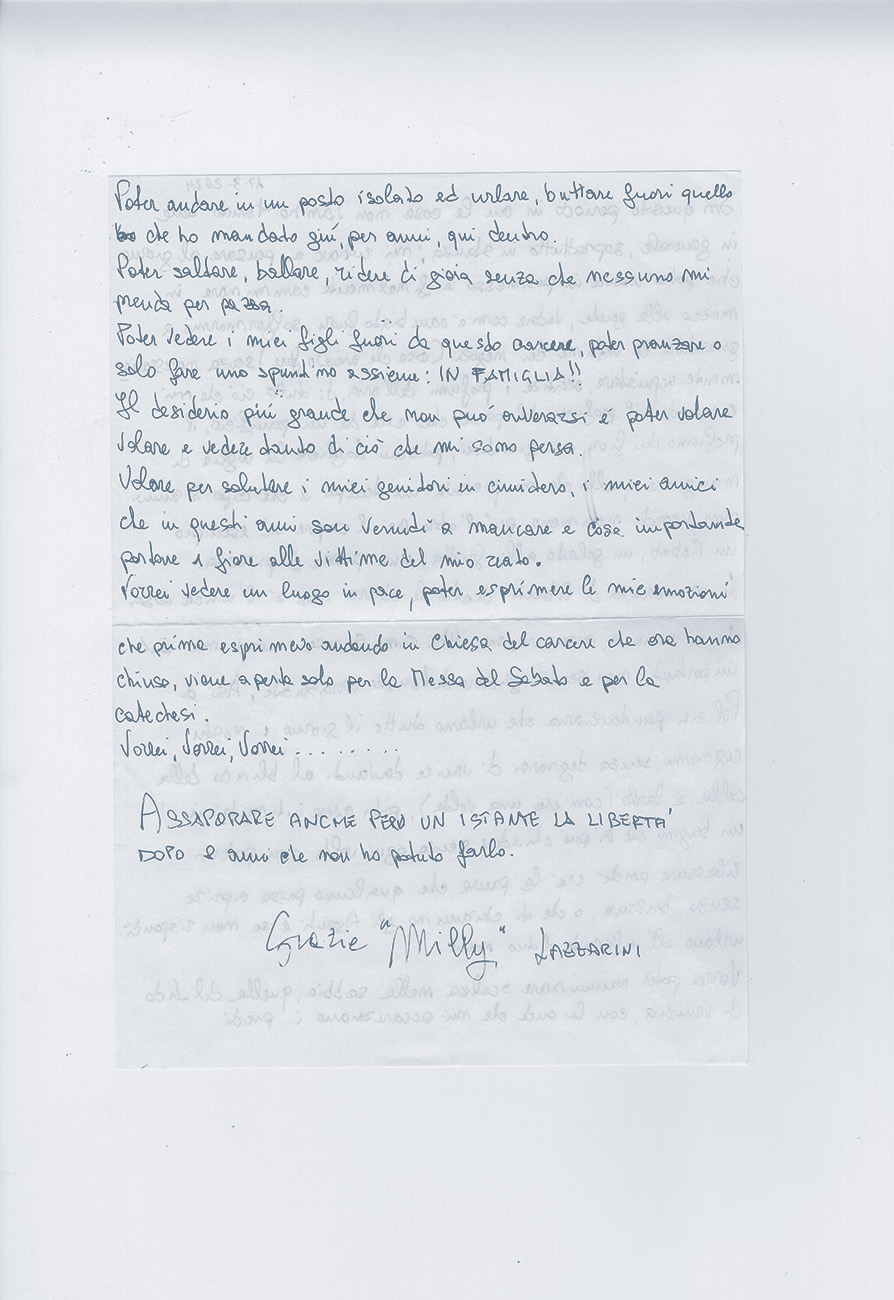 Poter andare in un posto isolato ed urlare, buttare fuori quello
che ho mandato giú, per anni, qui, dentro.
Poter saltare, ballare, ridere di gioia senza che nessuno mi
prenda per pazza.
Poter vedere i miei figli fuori da questo carcere, poter pranzare o
solo fare uno spuntino assieme: IN FAMIGLIA!!
Il desiderio piú grande che non puó avverarsi é poter volare
volare e vedere tanto di ciò che mi sono persa.
Volare per salutare i miei genitori in cimitero, i miei amici
che in questi anni son venuti a mancare e cosa importante
portare 1 fiore alle vittime del mio reato.
Vorrei vedere un luogo in pace, poter esprimere le mie emozioni
che prima esprimevo andando in Chiesa del carcere che ora hanno
chiuso, viene aperta solo per la Messa del Sabato e per la
catechesi.
Vorrei, Vorrei, Vorrei........
ASSAPORARE ANCHE PER UN ISTANTE LA LIBERTA'
DOPO anni che non ho potuto farlo.
Grazie "Milly" LAZZARINI